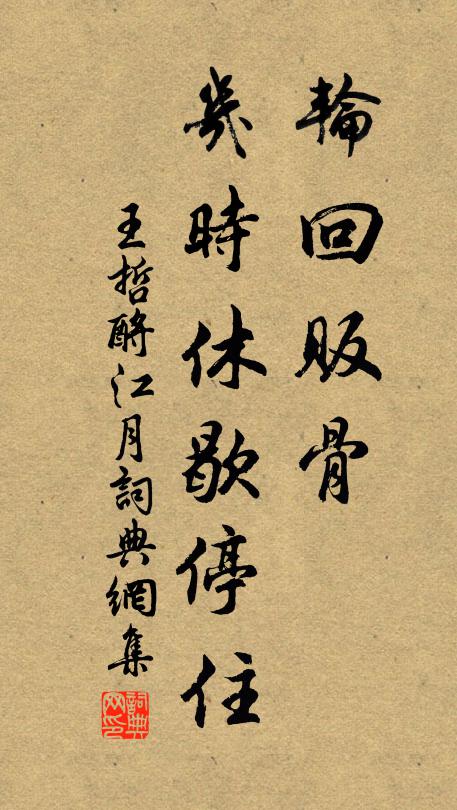 輪回販骨
幾時休歇停住
王哲酹江月詞典網集
詞典網印